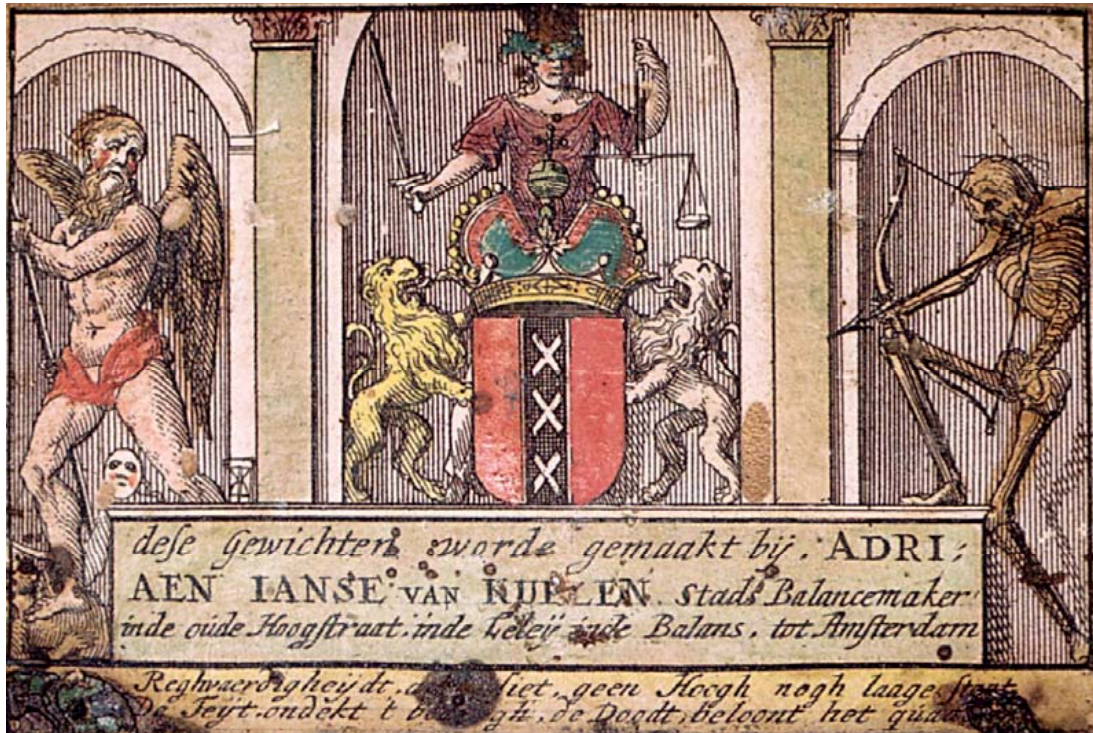 dese Gewichten worde gemaakt bij. ADRI:
AEN IANSE VAN Stads Balancemaker
inde oude Hoogstraat. inde Leleÿ inde Balans. tot Amsterdam
Reghvaerdigheÿdt. geen Hoogh nogh laage
De Teyt. ondekt t de Doodt, beloont het